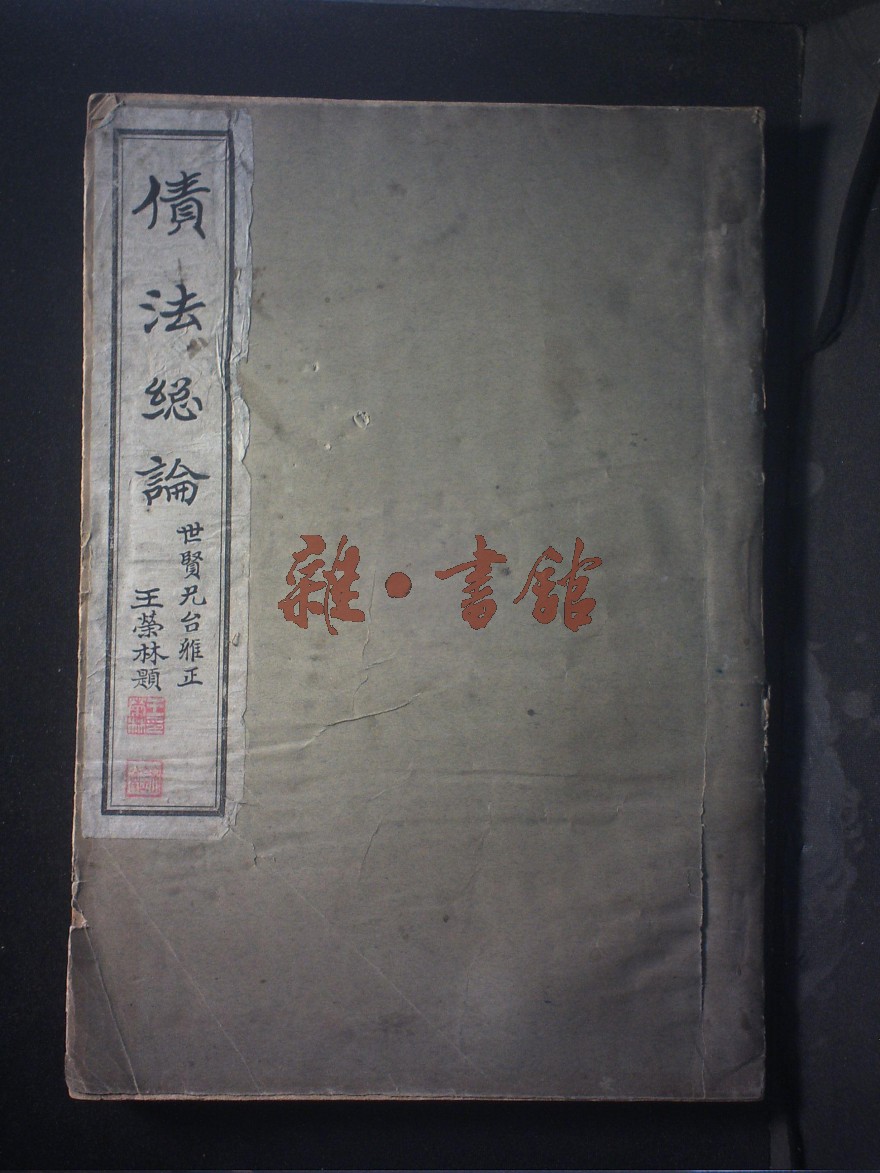 債法総論
世賢兄台雅正
王榮林題
雜·書館